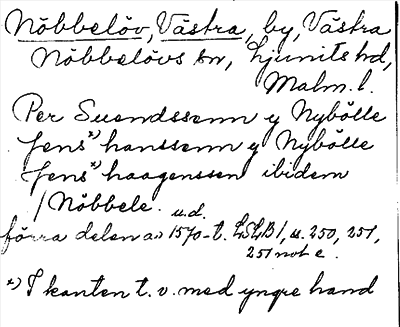 Nöbbelöv, Västra, by, Västra
Nöbbelövs sn, Ljunits hd,
Malm. l.
Per Suendssenn y Nybölle
Jens*) hanssenn y Nybölle
Jens*) haagenssen ibidem
/ Nöbbele. u.d.
förra delen av 1570-t. LSLB 1, u. 250, 251,
251 not e.
*) I kanten t. v. med yngre hand